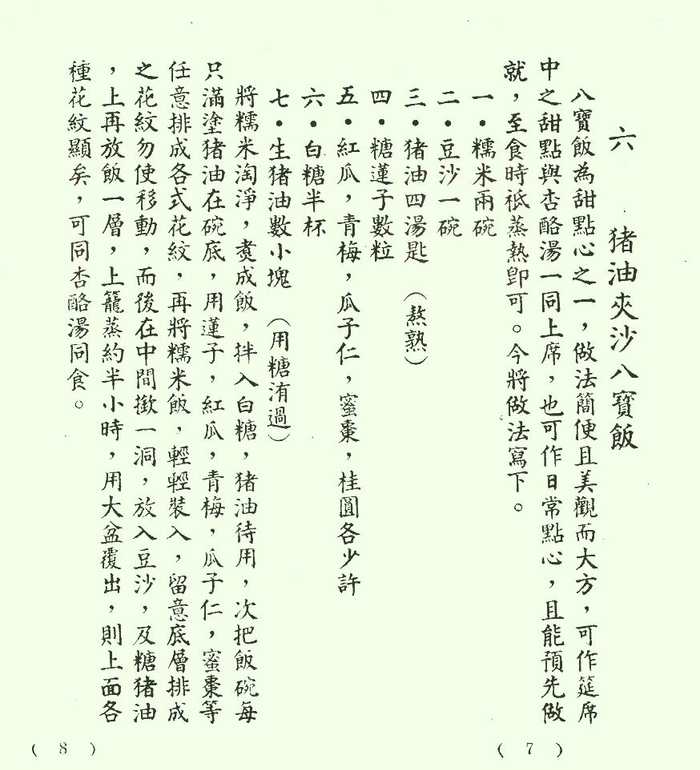 六 猪油夾沙八寶飯
八寶飯為甜點心之一，做法簡便且美觀而大方，可作筵席
中之甜點與杏酪湯一同上席，也可作日常點心，且能預先做
就，至食時祗蒸熱卽可。今將做法寫下。
一·糯米兩碗
二·豆沙一碗
三·猪油四湯匙 （熬熟）
四·糖蓮子數粒
五·紅瓜，青梅，瓜子仁，蜜棗，桂圓各少許
六·白糖半杯
七·生猪油數小塊 （用糖洧過）
將糯米淘淨，煑成飯，拌入白糖，猪油待用，次把飯碗每
只滿塗猪油在碗底，用蓮子，紅瓜，青梅，瓜子仁，蜜棗等
任意排成各式花紋，再將糯米飯，輕輕裝入，留意底層排成
之花紋勿使移動，而後在中間揿一洞，放入豆沙，及糖猪油
，上再放飯一層，上籠蒸約半小時，用大盆覆出，則上面各
種花紋顯矣，可同杏酪湯同食。
( 7 )
( 8 )